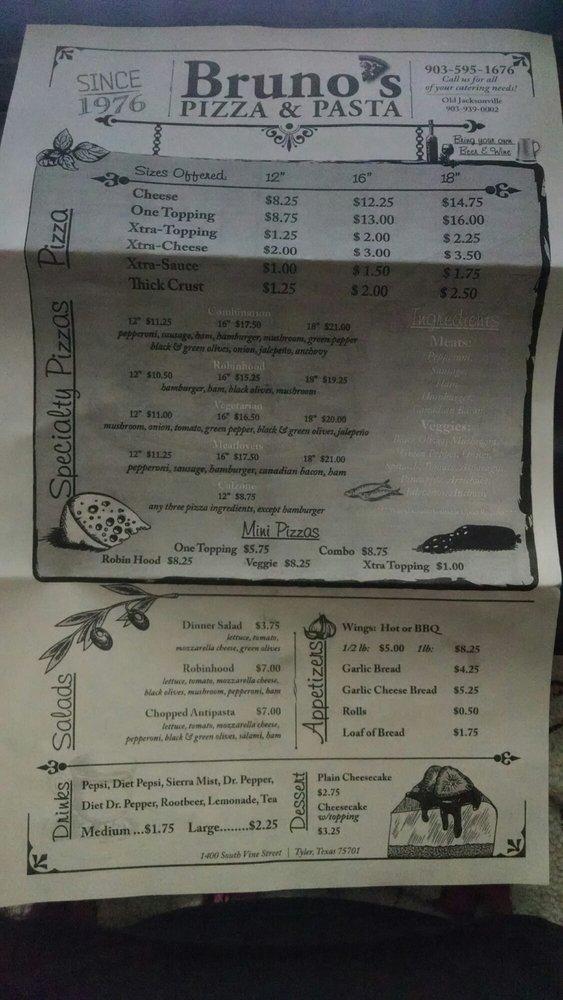 SINCE
1976
Bruno's
PIZZA & PASTA
903-595-1676
Call us for all
of your catering needs!
Old Jacksonville
903-939-0002
Bring your own
Beer & Wine
Pizza
Sizes Offered 12" 16" 18"
Cheese $8.25 $12.25 $14.75
One Topping $8.75 $13.00 $16.00
Xtra-Topping $1.25 $ 2.00 $ 2.25
Xtra-Cheese $2.00 $ 3.00 $ 3.50
Xtra-Sauce $1.00 $ 1.50 $ 1.75
Thick Crust $1.25 $ 2.00 $ 2.50
Specialty Pizzas
Combination
12" $11.25 16" $17.50 18" $21.00
pepperoni, sausage, ham, hamburger, mushroom, green pepper
black & green olives, onion, jalepeño, anchovy
Robinhood
12" $10.50 16" $15.25 18" $19.25
hamburger, ham, black olives, mushroom
Vegetarian
12" $11.00 16" $16.50 18" $20.00
mushroom, onion, tomato, green pepper, black & green olives, jalepeño
Meatlovers
12" $11.25 16" $17.50 18" $21.00
pepperoni, sausage, hamburger, canadian bacon, ham
Calzone
12" $8.75
any three pizza ingredients, except hamburger
Ingredients
Meats:
Pepperoni,
Sausage,
Ham,
Hamburger,
Canadian Bacon
Veggies:
Green Pepper, Onion,
Mini Pizzas
One Topping $5.75 Combo $8.75
Robin Hood $8.25 Veggie $8.25 Xtra Topping $1.00
Salads
Dinner Salad $3.75
lettuce, tomato,
mozzarella cheese, green olives
Robinhood $7.00
lettuce, tomato, mozzarella cheese,
black olives, mushroom, pepperoni, ham
Chopped Antipasta $7.00
lettuce, tomato, mozzarella cheese,
pepperoni, black & green olives, salami, ham
Appetizers
Wings: Hot or BBQ
1/2 lb: $5.00 1lb: $8.25
Garlic Bread $4.25
Garlic Cheese Bread $5.25
Rolls $0.50
Loaf of Bread $1.75
Drinks
Pepsi, Diet Pepsi, Sierra Mist, Dr. Pepper,
Diet Dr. Pepper, Rootbeer, Lemonade, Tea
Medium ...$1.75 Large........$2.25
Dessert
Plain Cheesecake
$2.75
Cheesecake
w/topping
$3.25
1400 South Vine Street | Tyler, Texas 75701